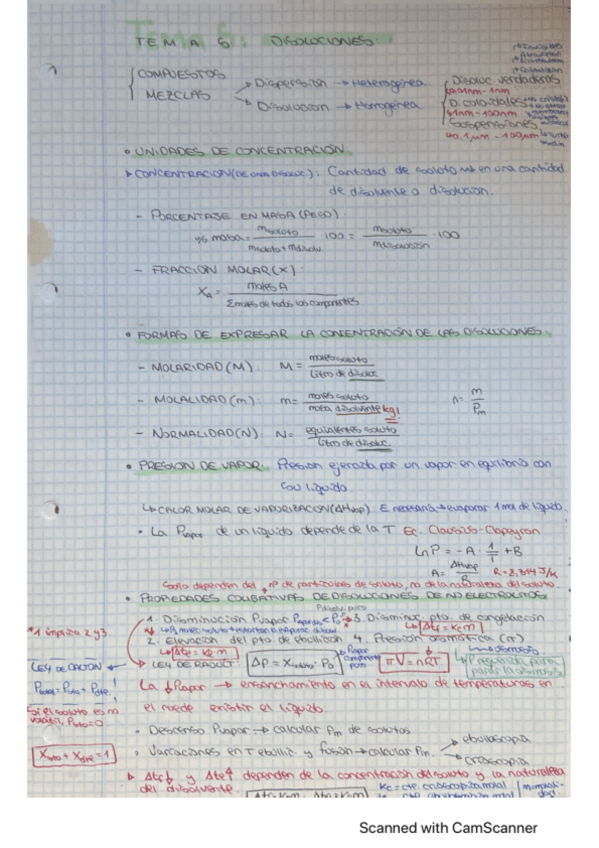 TEMA 6: DISOLUCIONES
COMPUESTOS
MEZCLAS
Dispersión → Heterogénea
Disolución → Homogénea
Disoluc. verdaderas
0,1nm - 1nm
D. coloidales
1nm - 100nm
Suspensiones
0.1 µm - 100µm
• UNIDADES DE CONCENTRACIÓN
CONCENTRACIÓN (DE UNA DISOLUC): Cantidad de soluto en una cantidad
de disolvente o disolución.
- PORCENTAJE EN MASA (PESO)
% masa = m soluto / m soluto + m disolv · 100 = m soluto / m disolución · 100
- FRACCIÓN MOLAR (X)
XA = moles A / Σ moles de todos los componentes
• FORMAS DE EXPRESAR LA CONCENTRACIÓN DE LAS DISOLUCIONES
- MOLARIDAD (M): M = moles soluto / Litro de disoluc
- MOLALIDAD (m): m = moles soluto / masa disolvente kg!
n = m / Pm
- NORMALIDAD (N): N = equivalentes soluto / Litro de disoluc.
• PRESIÓN DE VAPOR: Presión ejercida por un vapor en equilibrio con
su líquido.
↳ CALOR MOLAR DE VAPORIZACIÓN (ΔHvap): E necesaria → evaporar 1 mol de líquido.
• La Pvapor de un líquido depende de la T Ec. Clausius-Clapeyron
Ln P = -A · 1/T + B
A = ΔHvap / R R = 8,314 J/K
Solo dependen del nº de partículas de soluto, no de la naturaleza del soluto.
• PROPIEDADES COLIGATIVAS DE DISOLUCIONES DE NO ELECTROLITOS
1. Disminución Pvapor
3. Disminuc. pto. de congelación
Δtc = Kc·m
*1 implica 2 y 3
2. Elevación del pto. de ebullición 4. Presión osmótica (π)
Δte = Ke·m
LEY DE DALTON
LEY DE RAOULT
ΔP = Xsoluto · P0
πV = nRT
Si el soluto es no
volátil, Psto = 0
La ↓ Pvapor → ensanchamiento en el intervalo de temperaturas en
el puede existir el líquido.
• Descenso Pvapor → calcular Pm de solutos
• Variaciones en T ebullic. y fusión → calcular Pm.
ebulloscopia
crioscopia
Xsto + Xdte = 1
Δtc↓ y Δte↑ dependen de la concentración del soluto y la naturaleza
del disolvente.
Δtc = Kc·m Δte = Ke·m
Kc = cte. crioscópica molal
Scanned with CamScanner